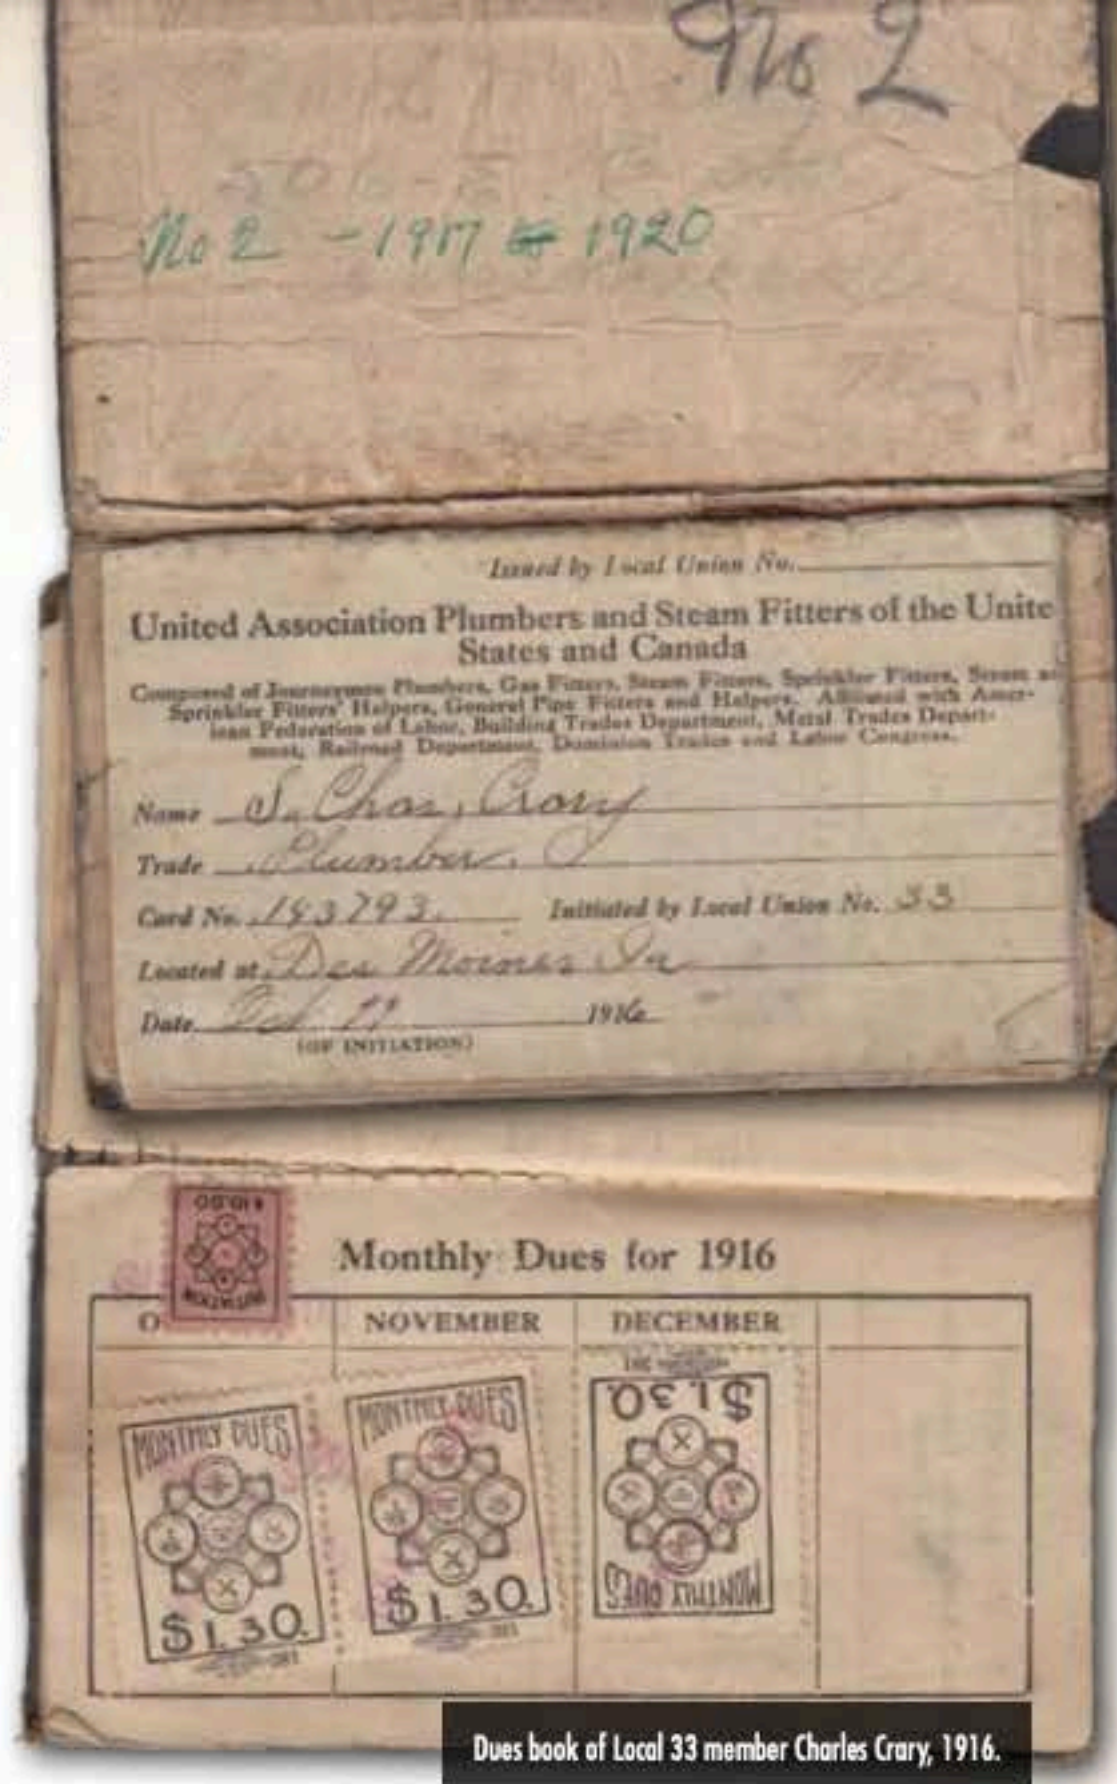 No 2
No 2 - 1917 to 1920
Issued by Local Union No.
United Association Plumbers and Steam Fitters of the Unite
States and Canada
Composed of Journeymen Plumbers, Gas Fitters, Steam Fitters, Sprinkler Fitters, Steam
Sprinkler Fitters' Helpers, General Pipe Fitters and Helpers. Affiliated with Amer-
ican Federation of Labor, Building Trades Department, Metal Trades Depart-
ment, Railroad Department, Dominion Trades and Labor Congress.
Name S. Chas. Crary
Trade Plumber.
Card No. 143793. Initiated by Local Union No. 33
Located at Des Moines Ia
Date 1916
(OF INITIATION)
$10.00
INITIATION
Monthly Dues for 1916
O NOVEMBER DECEMBER
MONTHLY DUES
$1.30
MONTHLY DUES
$1.30
$1.30
MONTHLY DUES
Dues book of Local 33 member Charles Crary, 1916.